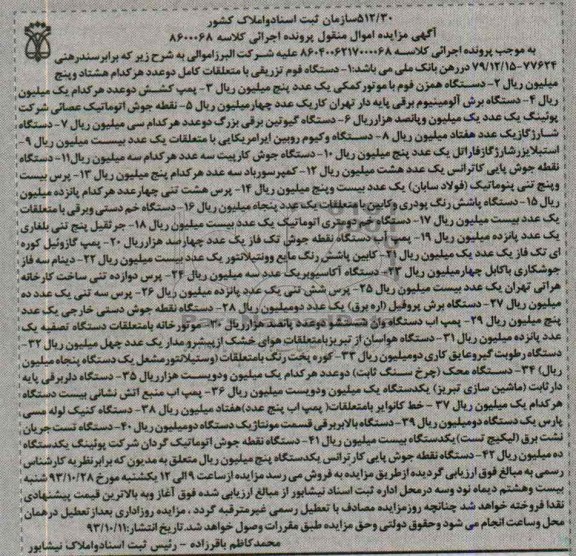 ۵۱۲/۳۰سازمان ثبت اسنادواملاک کشور
آگهی مزایده اموال منقول پرونده اجرائی کلاسه ۸۶۰۰۰۶۸
به موجب پرونده اجرائی کلاسه ۸۶۰۴۰۰۶۲۱۷۰۰۰۰۶۸ علیه شرکت البرزاموالی به شرح زیر که برابرسندرهنی
۷۷۶۲۴-۷۹/۱۲/۱۵ دررهن بانک ملی می باشد:۱- دستگاه فوم تزریقی با متعلقات کامل دوعدد هرکدام هشتاد و پنج
میلیون ریال ۲- دستگاه همزن فوم با موتورکمکی یک عدد پنج میلیون ریال ۳- پمپ کشش دوعدد هرکدام یک میلیون
ریال ۴- دستگاه برش آلومینیوم برقی پایه دار تهران کاریک عدد چهارمیلیون ریال ۵- نقطه جوش اتوماتیک عصائی شرکت
پوئینگ یک عدد یک میلیون وپانصد هزارریال ۶- دستگاه گیوتین برقی بزرگ دوعدد هرکدام سی میلیون ریال ۷- دستگاه
شارژگازیک عدد هفتاد میلیون ریال ۸- دستگاه وکیوم روبین ایرامریکایی با متعلقات یک عدد بیست میلیون ریال ۹-
استبلایزرشارژگازفاراتل یک عدد پنج میلیون ریال ۱۰- دستگاه جوش کارپیت سه عدد هرکدام سه میلیون ریال۱۱- دستگاه
نقطه جوش پایی کاترانس یک عدد هشت میلیون ریال ۱۲- کمپرسورباد سه عدد هرکدام پنج میلیون ریال ۱۳- پرس بیست
وپنج تنی پنوماتیک (فولاد سایان) یک عدد بیست وپنج میلیون ریال ۱۴- پرس هشت تنی چهارعدد هرکدام پانزده میلیون
ریال ۱۵- دستگاه پاشش رنگ پودری وکابین بامتعلقات یک عدد پنجاه میلیون ریال ۱۶- دستگاه خم دستی وبرقی با متعلقات
یک عدد بیست میلیون ریال ۱۷- دستگاه خم اتوماتیک یک عدد بیست میلیون ریال ۱۸- جرثقیل پنج تنی بلغاری
یک عدد پانزده میلیون ریال ۱۹- پمپ اپ دستگاه نقطه جوش تک فاز یک عدد چهارصد هزارریال ۲۰- پمپ گازوئیل کوره
ای تک فاز یک عدد یک میلیون ریال ۲۱- کابین پاشش رنگ مایع وونتیلاتور یک عدد بیست میلیون ریال ۲۲- دینام سه فاز
جوشکاری باکابل چهارمیلیون ریال ۲۳- دستگاه آکاسیوبریک عدد سه میلیون ریال ۲۴- پرس دوازده تنی ساخت کارخانه
هراتی تهران یک عدد بیست میلیون ریال ۲۵- پرس شش تنی یک عدد پانزده میلیون ریال ۲۶- پرس سه تنی یک عدد ده
میلیون ریال ۲۷- دستگاه برش پروفیل (اره برق) یک عدد دومیلیون ریال ۲۸- دستگاه نقطه جوش دستی خارجی یک عدد
پنج میلیون ریال ۲۹- پمپ اب دستگاه وان شستشو دوعدد پانصد هزارریال ۳۰- موتورخانه بامتعلقات دستگاه تصفیه یک
عدد پانزده میلیون ریال ۳۱- دستگاه هواسان از تبریزبامتعلقات هوای خشک ازپیشرو مدار یک عدد چهل میلیون ریال ۳۲-
دستگاه رطوبت گیروعایق کاری دومیلیون ریال ۳۳- کوره پخت رنگ بامتعلقات (وستیلاتورمشعل یک دستگاه پنجاه میلیون
ریال) ۳۴- دستگاه محک (چرخ سنگ ثابت) دوعدد هرکدام یک میلیون ودویست هزارریال ۳۵- دستگاه دلربرقی پایه
دارثابت (ماشین سازی تبریز) یکدستگاه یک میلیون ودویست میلیون ریال ۳۶- پمپ اب منبع اتش نشانی بیست دستگاه
هرکدام یک میلیون ریال ۳۷- خط کانوایر بامتعلقات( پمپ اب پنج عدد)هفتاد میلیون ریال ۳۸- دستگاه کنیک لوله مسی
پارس یک دستگاه دومیلیون ریال ۳۹- دستگاه بالابربرقی قسمت مونتاژیک دستگاه دومیلیون ریال ۴۰- دستگاه تست جریان
نشت برق (لیکیج تست)یکدستگاه بیست میلیون ریال ۴۱- دستگاه نقطه جوش اتوماتیک گردان شرکت پوئینگ یکدستگاه
ده میلیون ریال ۴۲- دستگاه نقطه جوش پایی کارترانس یکدستگاه پنج میلیون ریال متعلق به مدیون که برابرنظریه کارشناس
رسمی به مبالغ فوق ارزیابی گردیده ازطریق مزایده به فروش می رسد مزایده ازساعت ۹ الی ۱۲ یکشنبه مورخ ۹۳/۱۰/۲۸ شنبه
بیست وهشتم دیماه نود وسه درمحل اداره ثبت اسناد نیشابور از مبالغ ارزیابی شده فوق آغاز وبه بالاترین قیمت پیشنهادی
نقدا فروخته خواهد شد چنانچه روزمزایده مصادف با تعطیل رسمی غیرمترقبه گردد ، مزایده روزاداری بعدازتعطیل درهمان
محل وساعت انجام می شود وحقوق دولتی وحق مزایده طبق مقررات وصول خواهد شد.تاریخ انتشار:۹۳/۱۰/۱۱
محمدکاظم باقرزاده - رئیس ثبت اسنادواملاک نیشابور